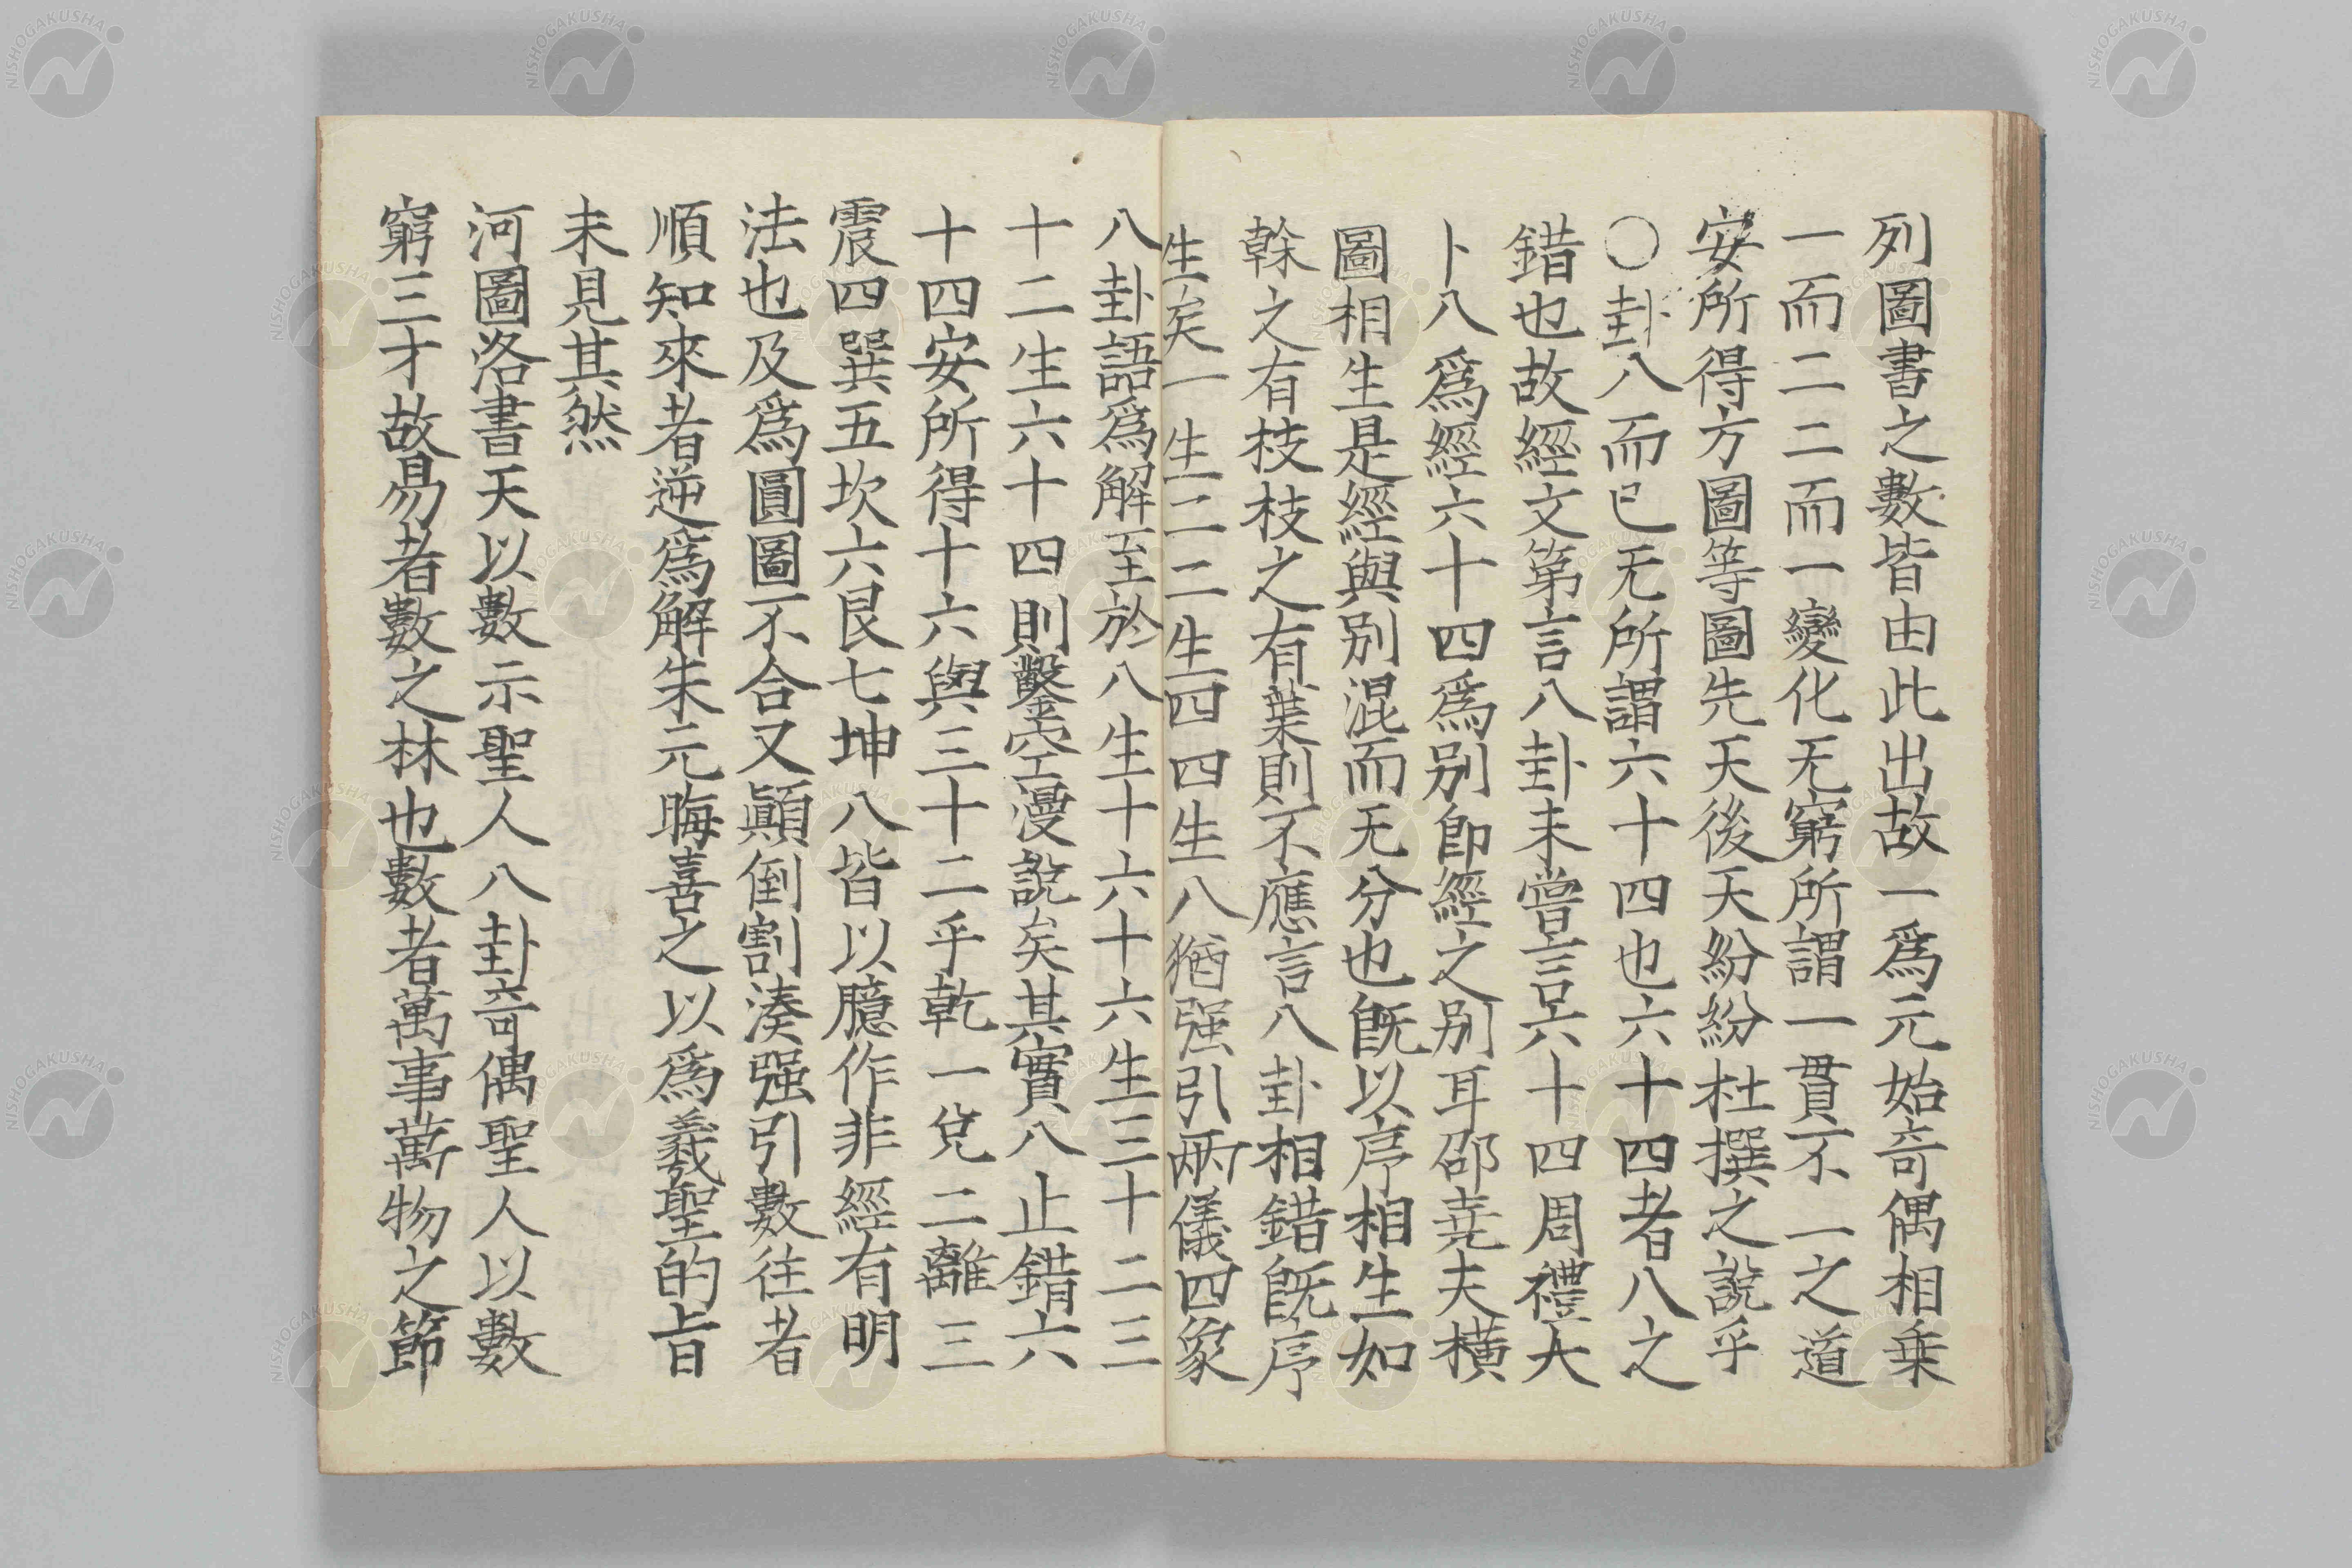 列圖書之數皆由此出故一爲元始奇偶相乗
一而二二而一變化无窮所謂一貫不一之道
安所得方圖等圖先天後天紛紛杜撰之說乎
○卦八而已无所謂六十四也六十四者八之
錯也故經文第言八卦未嘗言六十四周禮大
卜八爲經六十四爲别卽經之别耳邵堯夫橫
圖相生是經與别混而无分也旣以序相生如
榦之有枝枝之有葉則不應言八卦相錯旣序
生矣一生二二生四四生八猶强引兩儀四象
八卦語爲解至於八生十六十六生三十二三
十二生六十四則鑿空漫說矣其實八止錯六
十四安所得十六與三十二乎乾一兌二離三
震四巽五坎六艮七坤八皆以臆作非經有明
法也及爲圓圖不合又顚倒割湊强引數往者
順知來者逆爲解朱元晦喜之以爲羲聖的旨
未見其然
河圖洛書天以數示聖人八卦奇偶聖人以數
窮三才故易者數之林也數者萬事萬物之節
NISHOGAKUSHA